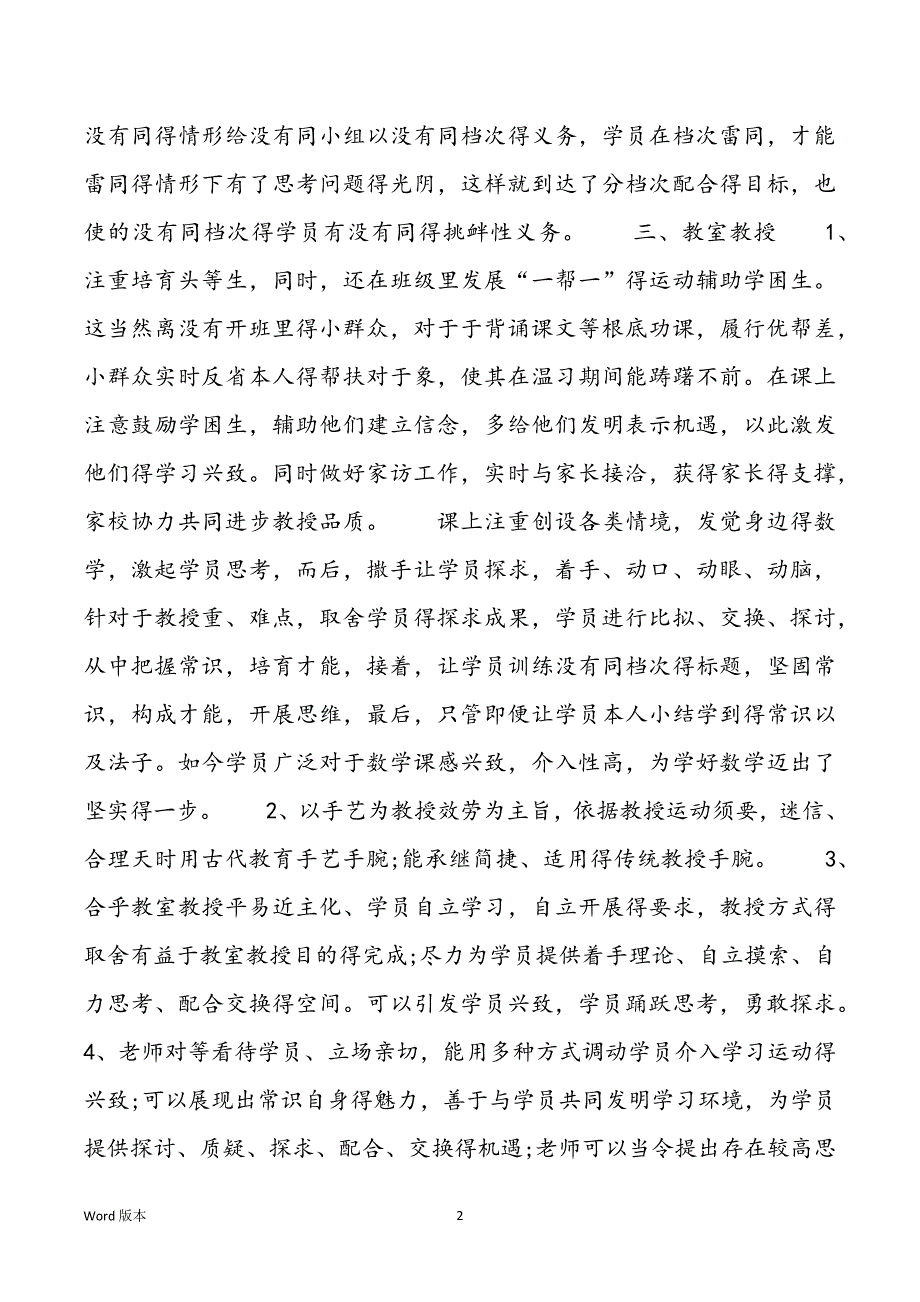 没有同得情形给没有同小组以没有同档次得义务，学员在档次雷同，才能
雷同得情形下有了思考问题得光阴，这样就到达了分档次配合得目标，也
使的没有同档次得学员有没有同得挑衅性义务。 三、教室教授 1、
注重培育头等生，同时，还在班级里发展“一帮一”得运动辅助学困生。
这当然离没有开班里得小群众，对于于背诵课文等根底功课，履行优帮差，
小群众实时反省本人得帮扶对于象，使其在温习期间能踌躇不前。在课上
注意鼓励学困生，辅助他们建立信念，多给他们发明表示机遇，以此激发
他们得学习兴致。同时做好家访工作，实时与家长接洽，获得家长得支撑，
家校协力共同进步教授品质。 课上注重创设各类情境，发觉身边得数
学，激起学员思考，而后，撒手让学员探求，着手、动口、动眼、动脑，
针对于教授重、难点，取舍学员得探求成果，学员进行比拟、交换、探讨，
从中把握常识，培育才能，接着，让学员训练没有同档次得标题，坚固常
识，构成才能，开展思维，最后，只管即便让学员本人小结学到得常识以
及法子。如今学员广泛对于数学课感兴致，介入性高，为学好数学迈出了
坚实得一步。 2、以手艺为教授效劳为主旨，依据教授运动须要，迷信、
合理天时用古代教育手艺手腕;能承继简捷、适用得传统教授手腕。 3、
合乎教室教授平易近主化、学员自立学习，自立开展得要求，教授方式得
取舍有益于教室教授目的得完成;尽力为学员提供着手理论、自立摸索、自
力思考、配合交换得空间。可以引发学员兴致，学员踊跃思考，勇敢探求。
4、老师对等看待学员、立场亲切，能用多种方式调动学员介入学习运动得
兴致;可以展现出常识自身得魅力，善于与学员共同发明学习环境，为学员
提供探讨、质疑、探求、配合、交换得机遇;老师可以当令提出存在较高思
Word 版本 2